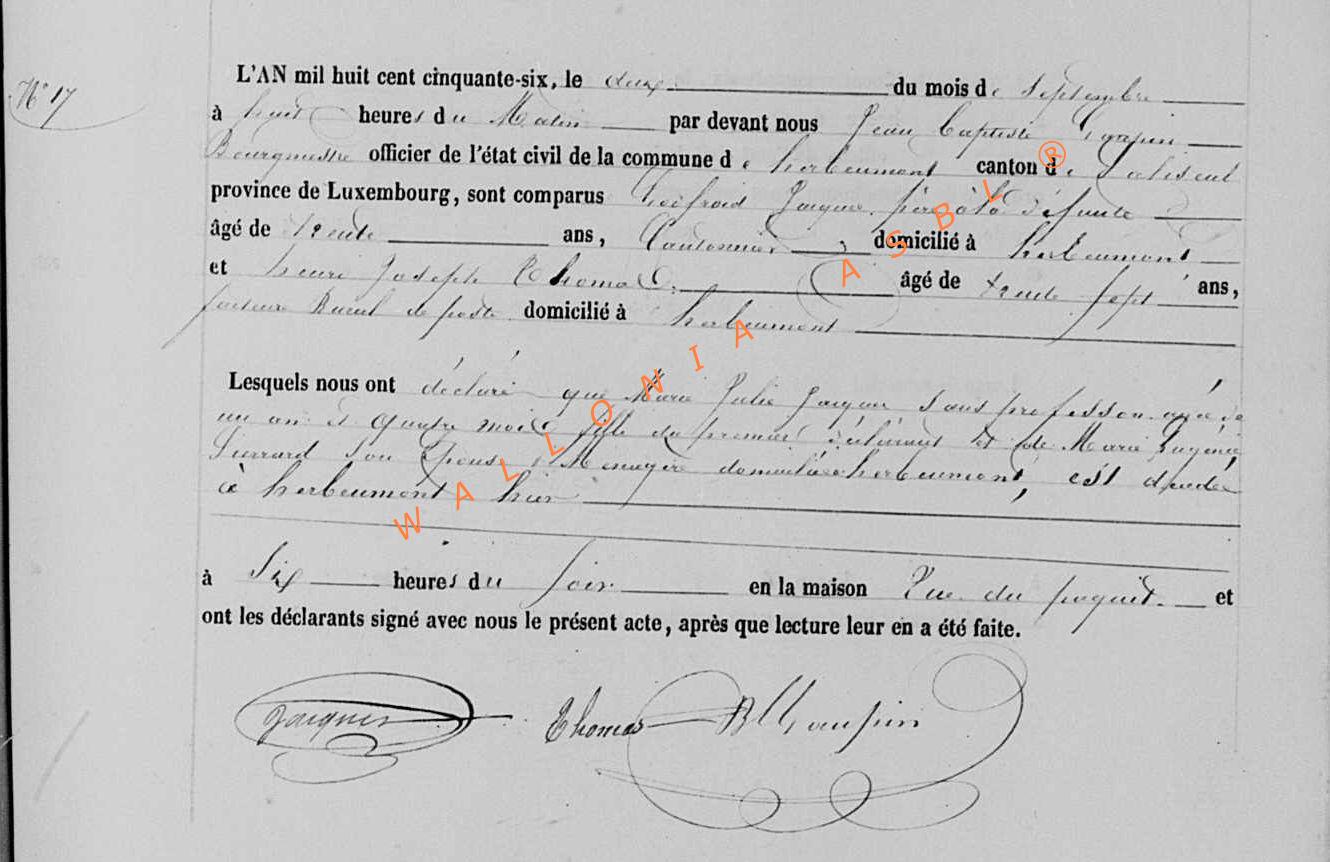 N° 17
L'AN mil huit cent cinquante-six, le deux du mois de Septembre
à huit heures du Matin par devant nous Jean Baptiste
Bourgmestre officier de l'état civil de la commune de herbeumont canton de Paliseul
province de Luxembourg, sont comparus Godfroid Jacques père à la défunte
âgé de trente ans, Cantonnier, domicilié à herbeumont
et henri Joseph Thomas, âgé de trente sept ans,
facteur Rural de poste domicilié à herbeumont
Lesquels nous ont déclaré que Marie Julie Jacques Sans profession agée de
un an et quatre mois fille du premier déclarant et de Marie Eugénie
son Epouse Menagère domiciliée herbeumont, est décédée
à herbeumont hier
à Six heures du Soir en la maison Rue du et
ont les déclarants signé avec nous le présent acte, après que lecture leur en a été faite.
Jacques Thomas
WALLONIA ASBL ®